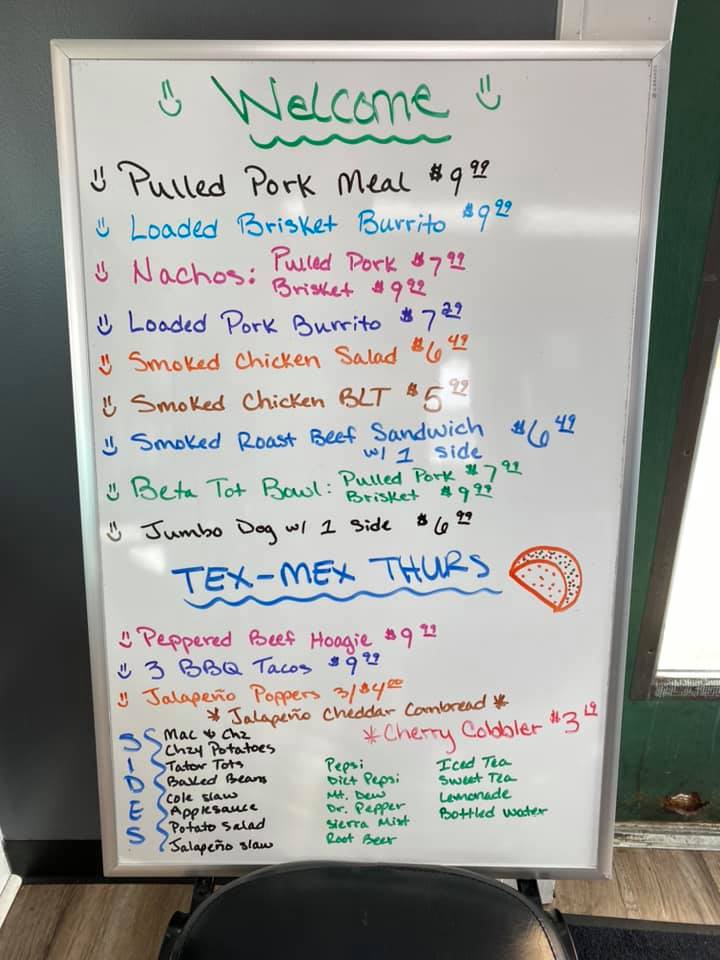 Welcome
Pulled Pork Meal $9.99
Loaded Brisket Burrito $9.99
Nachos: Pulled Pork $7.99
Brisket $9.99
Loaded Pork Burrito $7.29
Smoked Chicken Salad $6.49
Smoked Chicken BLT $5.99
Smoked Roast Beef Sandwich $6.49
w/ 1 side
Beta Tot Bowl: Pulled Pork $7.99
Brisket $9.99
Jumbo Dog w/ 1 Side $6.99
TEX-MEX THURS
Peppered Beef Hoagie $9.99
3 BBQ Tacos $9.99
Jalapeño Poppers 3/$4.00
* Jalapeño Cheddar Cornbread *
* Cherry Cobbler $3.19
SIDES
Mac & Chz
Chzy Potatoes
Tator Tots
Baked Beans
Cole slaw
Applesauce
Potato Salad
Jalapeño slaw
Pepsi
Diet Pepsi
Mt. Dew
Dr. Pepper
Sierra Mist
Root Beer
Iced Tea
Sweet Tea
Lemonade
Bottled Water